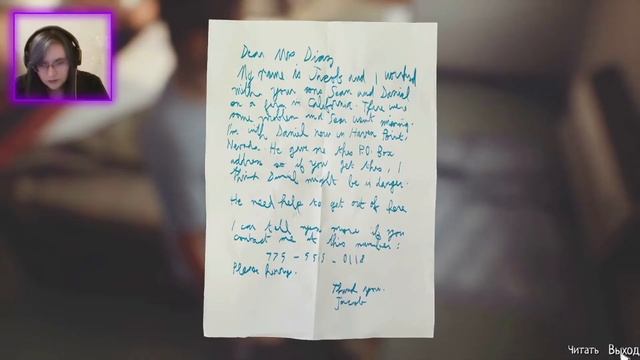 Dear Mrs. Diaz
My name is Jacob and I worked
with your sons Sean and Daniel
on a farm in California. There were
some problem and Sean went missing.
I'm with Daniel now in Haven Point,
Nevada. He gave me this P.O. Box
address so if you get this, I
think Daniel might be in danger.
He need help to get out of here
I can tell you more if you
contact me at this number:
775-555-0118
Please hurry.
Thank you.
Jacob
Читать Выход